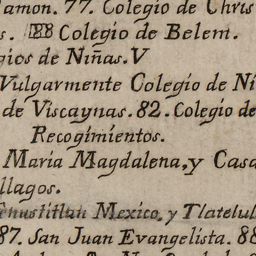 amon. 77. Colegio de Chris
s. 88 Colegio de Belem.
gios de Niñas. V
Vulgarmente Colegio de Ni
de Viscaynas. 82. Colegio de
Recogimientos.
Maria Magdalena, y Casa
llagos.
Mexico, y Tlatelul
87. San Juan Evangelista. 88